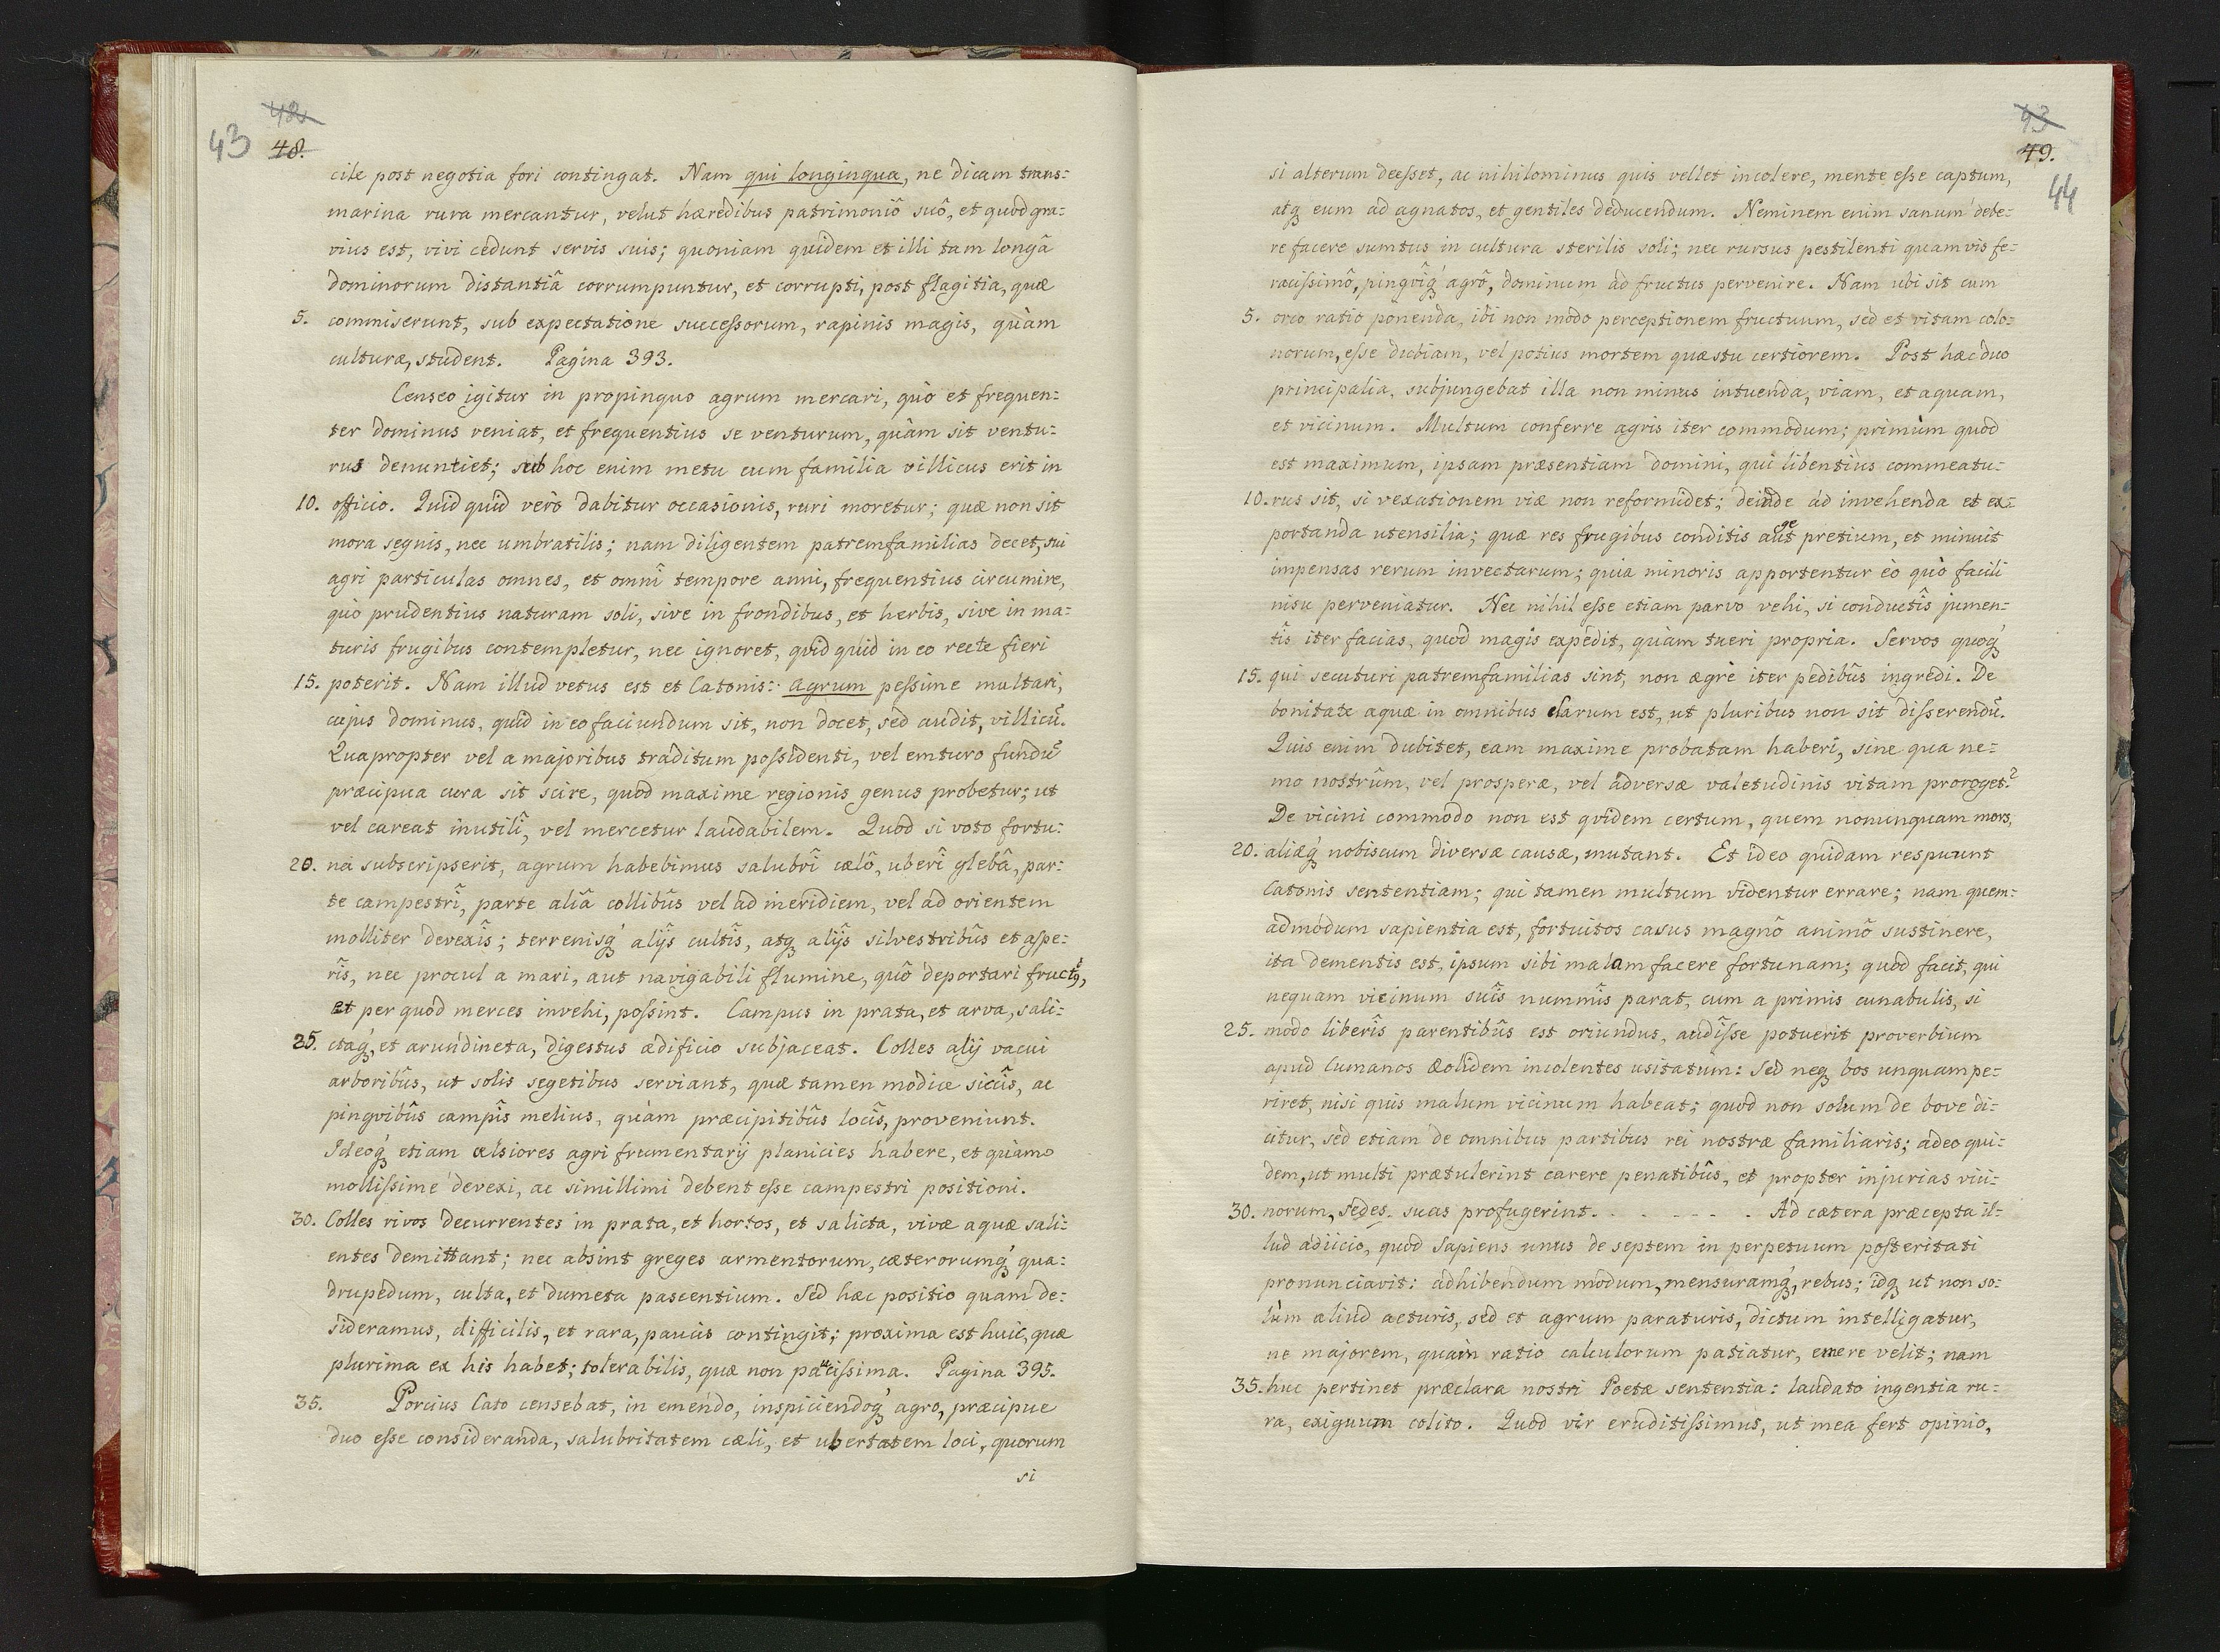 42
43 48.
cile post negotia fori contingat. Nam qui longinqua, ne dicam trans:
marina rura mercantur, velut hæredibus patrimoniô suô, et quod gra:
vius est, vivi cedunt servis suis; quoniam quidem et illi tam longâ
dominorum distantiâ corrumpuntur, et corrupti, post flagitia, quæ
5. commiserunt, sub expectatione successorum, rapinis magis, quàm
culturæ, student. Pagina 393.
Censeo igitur in propinquo agrum mercari, quò et frequen:
ter dominus veniat, et frequentius se venturum, quàm sit ventu:
rus denuntiet; sub hoc enim metu cum familia villicus erit in
10. officio. Quid quid verò dabitur occasionis, ruri moretur; quæ non sit
mora segnis, nec umbratilis; nam diligentem patremfamilias decet, sui
agri particulas omnes, et omnî tempore anni, frequentius circumire,
quò prudentius naturam soli, sive in frondibus, et herbis, sive in ma:
turis frugibus contempletur, nec ignoret, quid quid in eo recte fieri
15. poterit. Nam illud vetus est et Catonis: agrum pessime multari,
cujus dominus, quid in eo faciundum sit, non docet, sed audit, villicũ.
Quapropter vel a majoribus traditum possidenti, vel emturo fundũ
præcipua cura sit scire, quod maxime regionis genus probetur; ut
vel careat inutilî, vel mercetur laudabilem. Quod si voto fortu:
20. na subscripserit, agrum habebimus salubrî cælô, uberî glebâ, par:
te campestrî, parte aliâ collibûs vel ad meridiem, vel ad orientem
molliter devexîs; terrenisq́ alijs cultîs, atq alijs silvestribûs et aspe:
rîs, nec procul a mari, aut navigabili flumine, quô deportari fruct9,
et per quod merces invehi, possint. Campus in prata, et arva, sali:
25. ctaq́, et arundineta, digestus ædificio subjaceat. Colles alij vacui
arboribûs, ut solis segetibus serviant, quæ tamen modice siccîs, ac
pingvibûs campîs melius, quàm præcipitibûs locîs, proveniunt.
Ideoq́ etiam celsiores agri frumentarij planicies habere, et quàm
mollissime devexi, ac simillimi debent esse campestri positioni.
30. Colles rivos decurrentes in prata, et hortos, et salicta, vivæ aquæ sali:
entes demittant; nec absint greges armentorum, cæterorumq́ qua:
drupedum, culta, et dumeta pascentium. Sed hæc positio quam de:
sideramus, difficilis, et rara, paucis contingit; proxima est huic, quæ
plurima ex his habet; tolerabilis, quæ non paucissima. Pagina 395.
35. Porcius Cato censebat, in emendo, inspiciendoq́ agro, præcipue
duo esse consideranda, salubritatem cæli, et ubertatem loci, quorum
si
43
49.
44
si alterum deesset, ac nihilominus quis vellet incolere, mente esse captum,
atq eum ad agnatos, et gentiles deducendum. Neminem enim sanum debe:
re facere sumtus in cultura sterilis soli; nec rursus pestilenti quamvis fe:
racissimô, pingviq́ agrô, dominum ad fructus pervenire. Nam ubi sit cum
5. orco ratio ponenda, ibi non modo perceptionem fructuum, sed et vitam colo:
norum, esse dubiam, vel potius mortem quæstu certiorem. Post hæc duo
principalia, subjungebat illa non minus intuenda, viam, et aquam,
et vicinum. Multum conferre agris iter commodum; primùm quod
est maximum, ipsam præsentiam domini, qui libentiùs commeatu:
10. rus sit, si vexationem viæ non reformidet; deinde ad invehenda et ex:
portanda utensilia; quæ res frugibus conditis auget pretium, et minuit
impensas rerum invectarum; quia minoris apportentur eò quò facili
nisu perveniatur. Nec nihil esse etiam parvo vehi, si conductîs jumen:
tîs iter facias, quod magis expedit, quàm tueri propria. Servos quoq́
15. qui secuturi patremfamilias sint, non ægrè iter pedibûs ingredi. De
bonitate aquæ in omnibus clarum est, ut pluribus non sit disserendũ.
Quis enim dubitet, eam maxime probatam haberi, sine qua ne:
mo nostrûm, vel prosperæ, vel adversæ valetudinis vitam proroget?
De vicini commodo non est qvidem certum, quem nonunquam mors,
20. aliæq́ nobiscum diversæ causæ, mutant. Et ideo quidam respuunt
Catonis sententiam; qui tamen multum videntur errare; nam quem:
admodum sapientia est, fortuitos casus magnô animô sustinere,
ita dementis est, ipsum sibi malam facere fortunam; quod facit, qui
nequam vicinum suîs nummîs parat, cum a primis cunabulis, si
25. modo liberîs parentibûs est oriundus, audîsse potuerit proverbium
apud Cumanos Æolidem incolentes usitatum: Sed neq bos unquam pe:
riret, nisi quis malum vicinum habeat; quod non solum de bove di:
citur, sed etiam de omnibus partibus rei nostræ familiaris; adeo qui:
dem, ut multi prætulerint carere penatibûs, et propter injurias vici:
30. norum, sedes suas profugerint. . . . . . . Ad cætera præcepta il:
lud adiicio, quod Sapiens unus de septem in perpetuum posteritati
pronunciavit: adhibendum modum, mensuramq́, rebus; idq ut non so:
lùm aliud acturis, sed et agrum paraturis, dictum intelligatur,
ne majorem, quàm ratio calculorum patiatur, emere velit; nam
35. huc pertinet præclara nostri Poetæ sententia: laudato ingentia ru:
ra, exiguum colito. Quod vir eruditissimus, ut mea fert opinio,